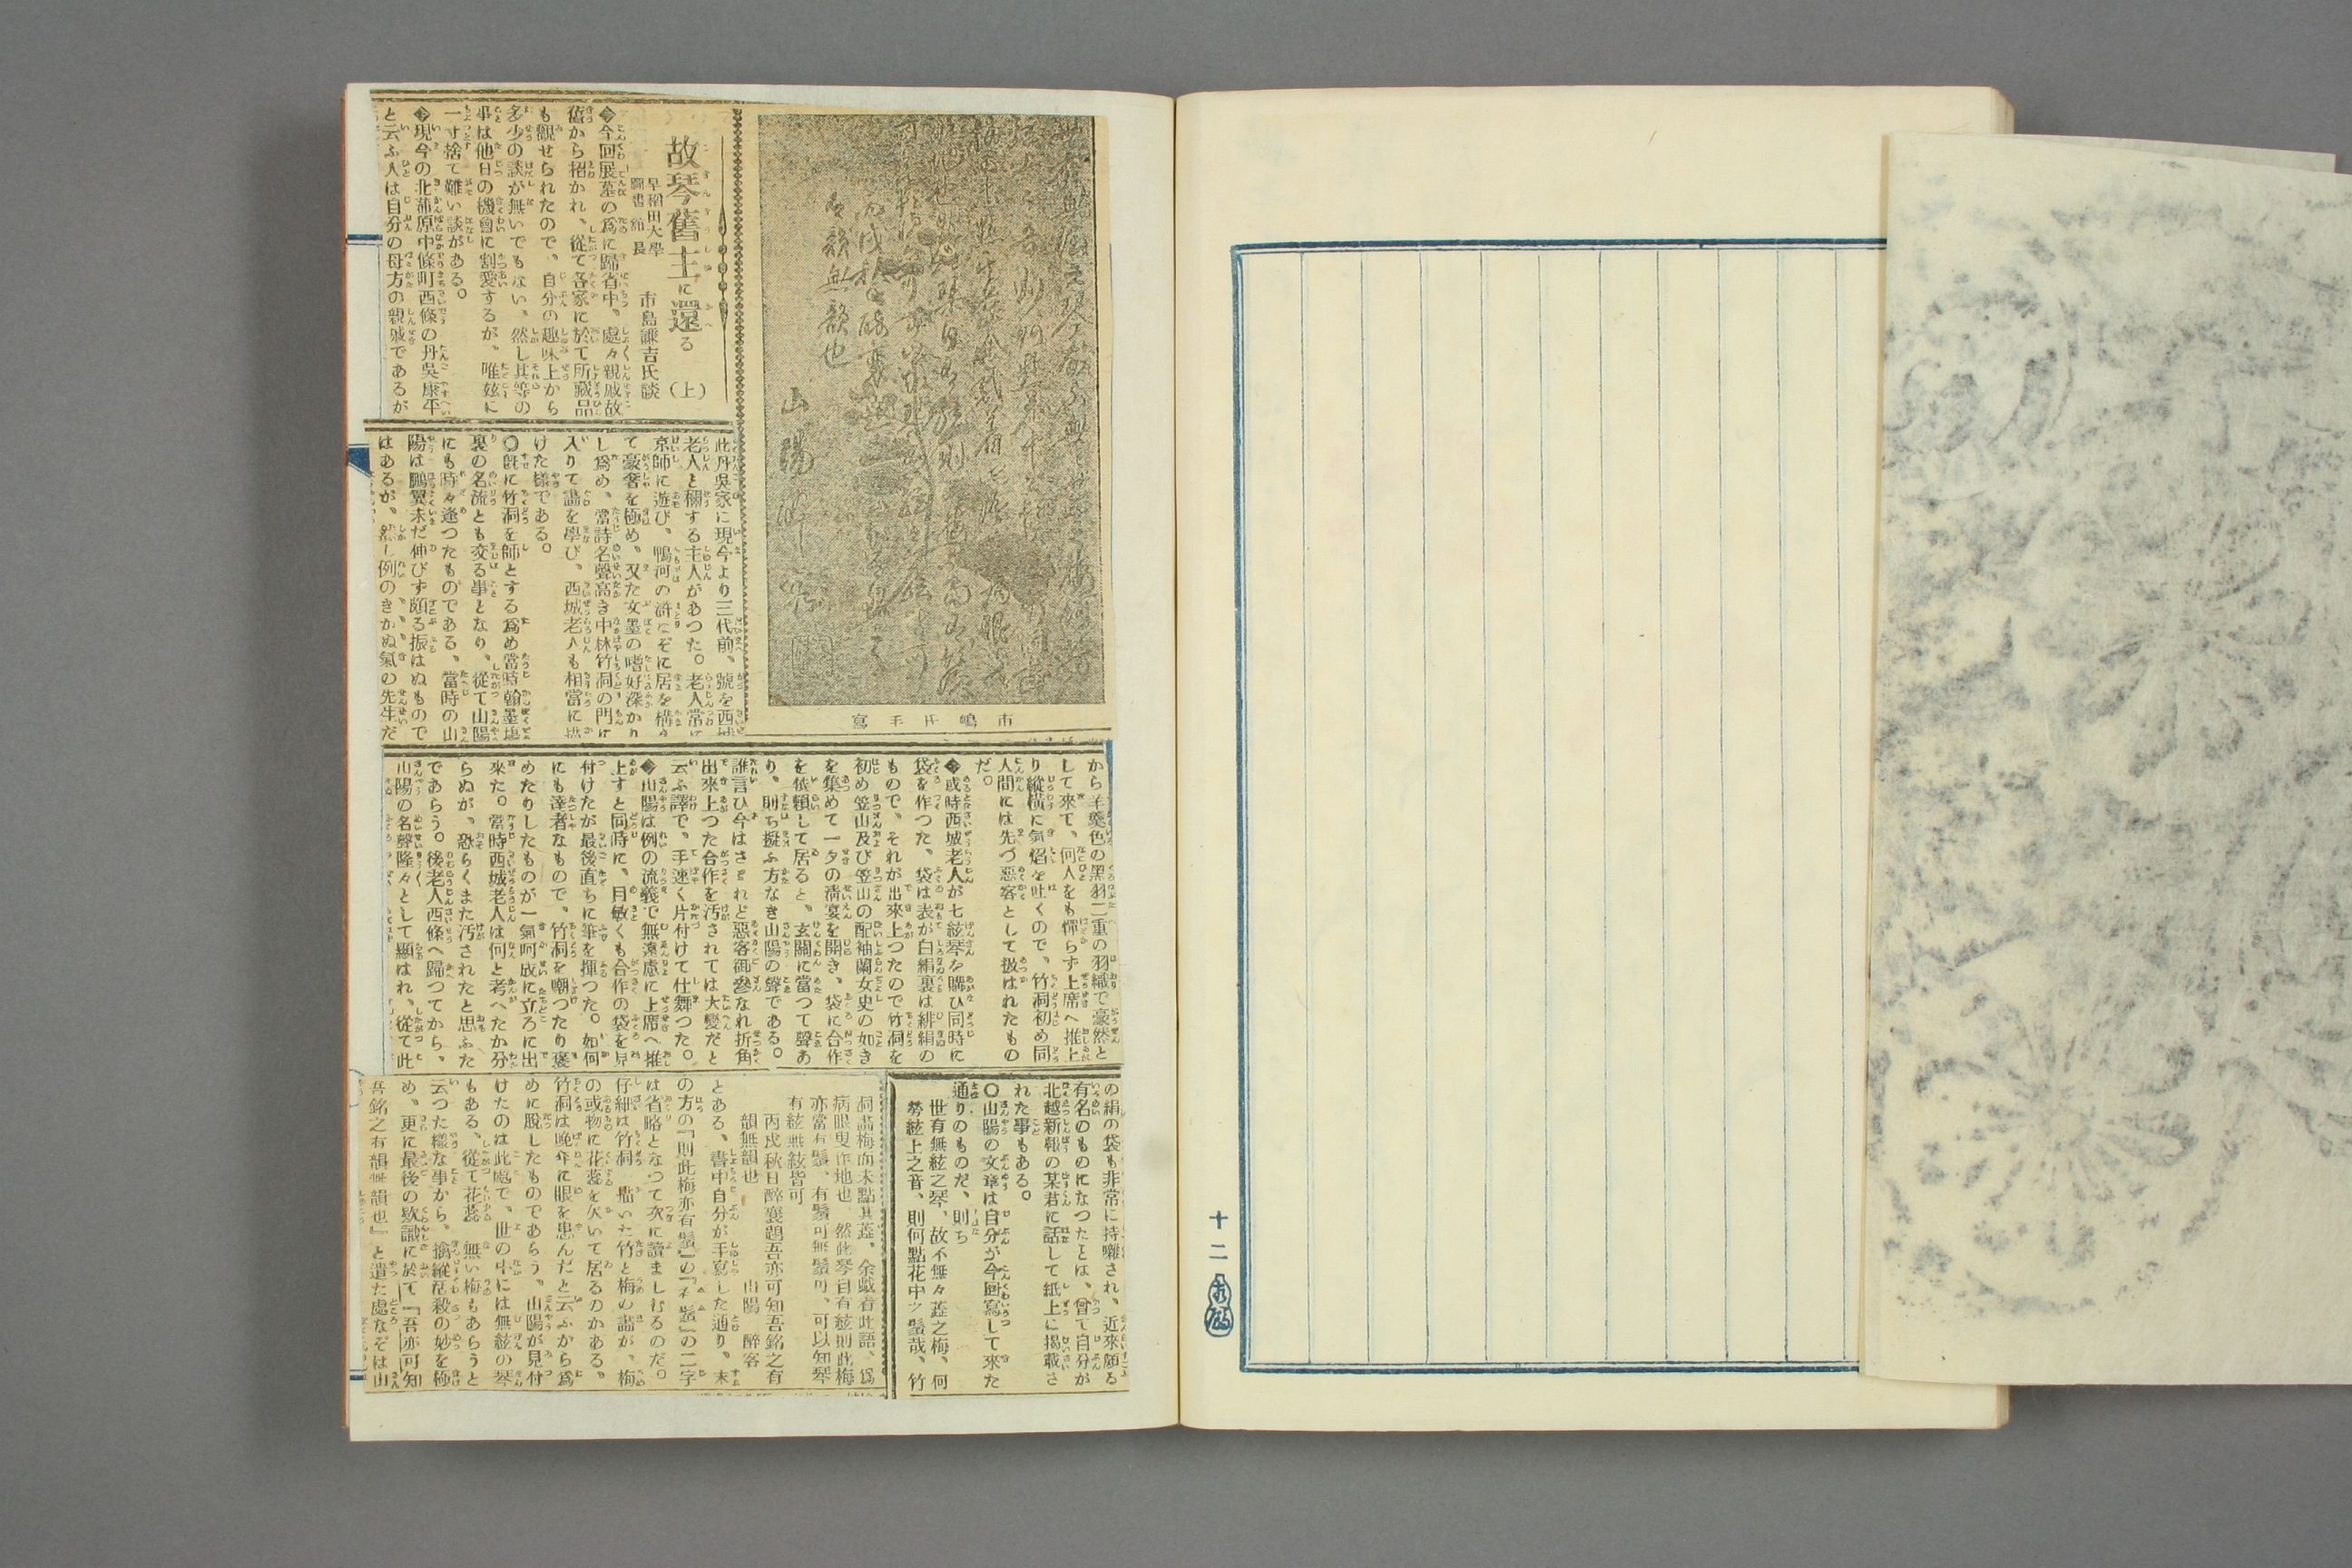 故琴舊土に還る（上）
早稻田大學
圖書館長
市島謙吉氏談
◈今回展墓の爲に歸省中、處々親戚故
舊から招かれ、從て各家に於て所藏品
も觀せられたので、自分の趣味上から
多少の談が無いでもない、然し其等の
事は他日の機會に割愛するが、唯玆に
一寸捨て難い談がある。
◈現今の北蒲原中條町西條の丹呉康平
と云ふ人は自分の母方の親戚であるが
市嶋氏手寫
此丹呉家に現今より三代前、號を西城
老人と稱する主人があつた。老人常に
京師に遊び、鴨河の滸に居を構へ
て豪奢を極め、又た文墨の嗜好深かり
し爲め、當時名聲高き中林竹洞の門に
入りて畵を學び、西城老人も相當に描
けた樣である。
○旣に竹洞を師とする爲め當時翰墨塲
裏の名流とも交る事となり、從て山陽
にも時々逢つたものである、當時の山
陽は鵬翼未だ伸びず頗る振はぬもので
はあるが、然し例のきかぬ氣の先生だ
から羊羹色の黑羽二重の羽織で豪然と
して來て、何人をも憚らず上席へ推上
り縱橫に氣焰を吐くので、竹洞初め同
人間には先づ惡客として扱はれたもの
だ。
◈或時西城老人が七絃琴を購ひ同時に
袋を作つた、袋は表が白絹裏は緋絹の
もので、それが出來上つたので竹洞を
初め笠山及び笠山の配袖蘭女史の如き
を集めて一夕の淸宴を開き、袋に合作
を依賴して居ると、玄關に當つて聲あ
り、則ち擬ふ方なき山陽の聲である。
誰言ひ今はさまれど惡客御參なれ折角
出來上つた合作を汚されては大變だと
云ふ譯で、手速く片付けて仕舞つた。
◈山陽は例の流義で無遠慮に上席へ推
上すと同時に、目敏くも合作の袋を見
付けたが最後直ちに筆を揮つた。如何
にも達者なもので、竹洞を嘲つたり褒
めたりしたものが一氣呵成に立ろに出
來た。當時西城老人は何と考へたか分
らぬが、恐らくまた汚されたと思ふた
であらう。後老人西條へ歸つてから、
山陽の名聲隆々として顯はれ、從て此
の絹の袋も非常に持囃され、近來頗る
有名のものになつたとは、曾て自分が
北越新報の某君に話して紙上に揭載さ
れた事もある。
○山陽の文章は自分が今回寫して來た
通りのものだ、則ち
世有無絃之琴、故不無々蕋之梅、何
勞絃上之音、則何點花中之鬚哉、竹
洞畵梅而未點其蕋、余戱着此語、爲
病眼叟作地也、然此琴自有絃則此梅
亦當有鬚、有鬚可無鬚可、可以知琴
有絃無絃皆可
丙戌秋日醉裏題吾亦可知吾銘之有
韻無韻也
山陽 醉客
とある、書中自分が手寫した通り、末
の方の『則此梅亦有鬚』の『有鬚』の二字
は省略となつて次に讀ましむるのだ。
仔細は竹洞の描いた竹と梅の畵が、梅
の或物に花蕊を欠いて居るのかある。
竹洞は晩年に眼を患んだと云ふから爲
めに脫したものであらう。山陽が見付
けたのは此處で、世の中には無絃の琴
もある、從て花蕊の無い梅もあらうと
云つた樣な事から、擒縱活殺の妙を極
め、更に最後の欵識に於て『吾亦可知
吾銘之有韻無韻也』と遣た處なぞは山
十二